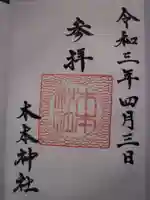 令和三年四月三日
参拝
木本神社